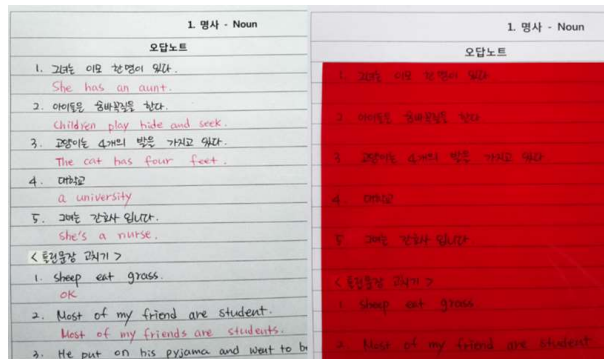 1. 명사 - Noun
오답노트
1. 그녀는 이모 한 명이 있다.
She has an aunt.
2. 아이들은 숨바꼭질을 한다.
Children play hide and seek.
3. 고양이는 4개의 발을 가지고 있다.
The cat has four feet.
4. 대학교
a university
5. 그녀는 간호사 입니다.
she's a nurse.
< 틀린문장 고치기 >
1. sheep eat grass.
OK
2. Most of my friend are student.
Most of my friends are students.
3. He put on his pyjama and went to
1. 명사 - Noun
오답노트
1 그녀는 이모 한 명이 있다
2 아이들은 숨바꼭질을 한다
3 고양이는 4개의 발을 가지고 있다
4 대학교
5 그녀는 간호사 입니다
< 틀린문장 고치기 >
1 sheep eat grass
2 Most of my friend are student